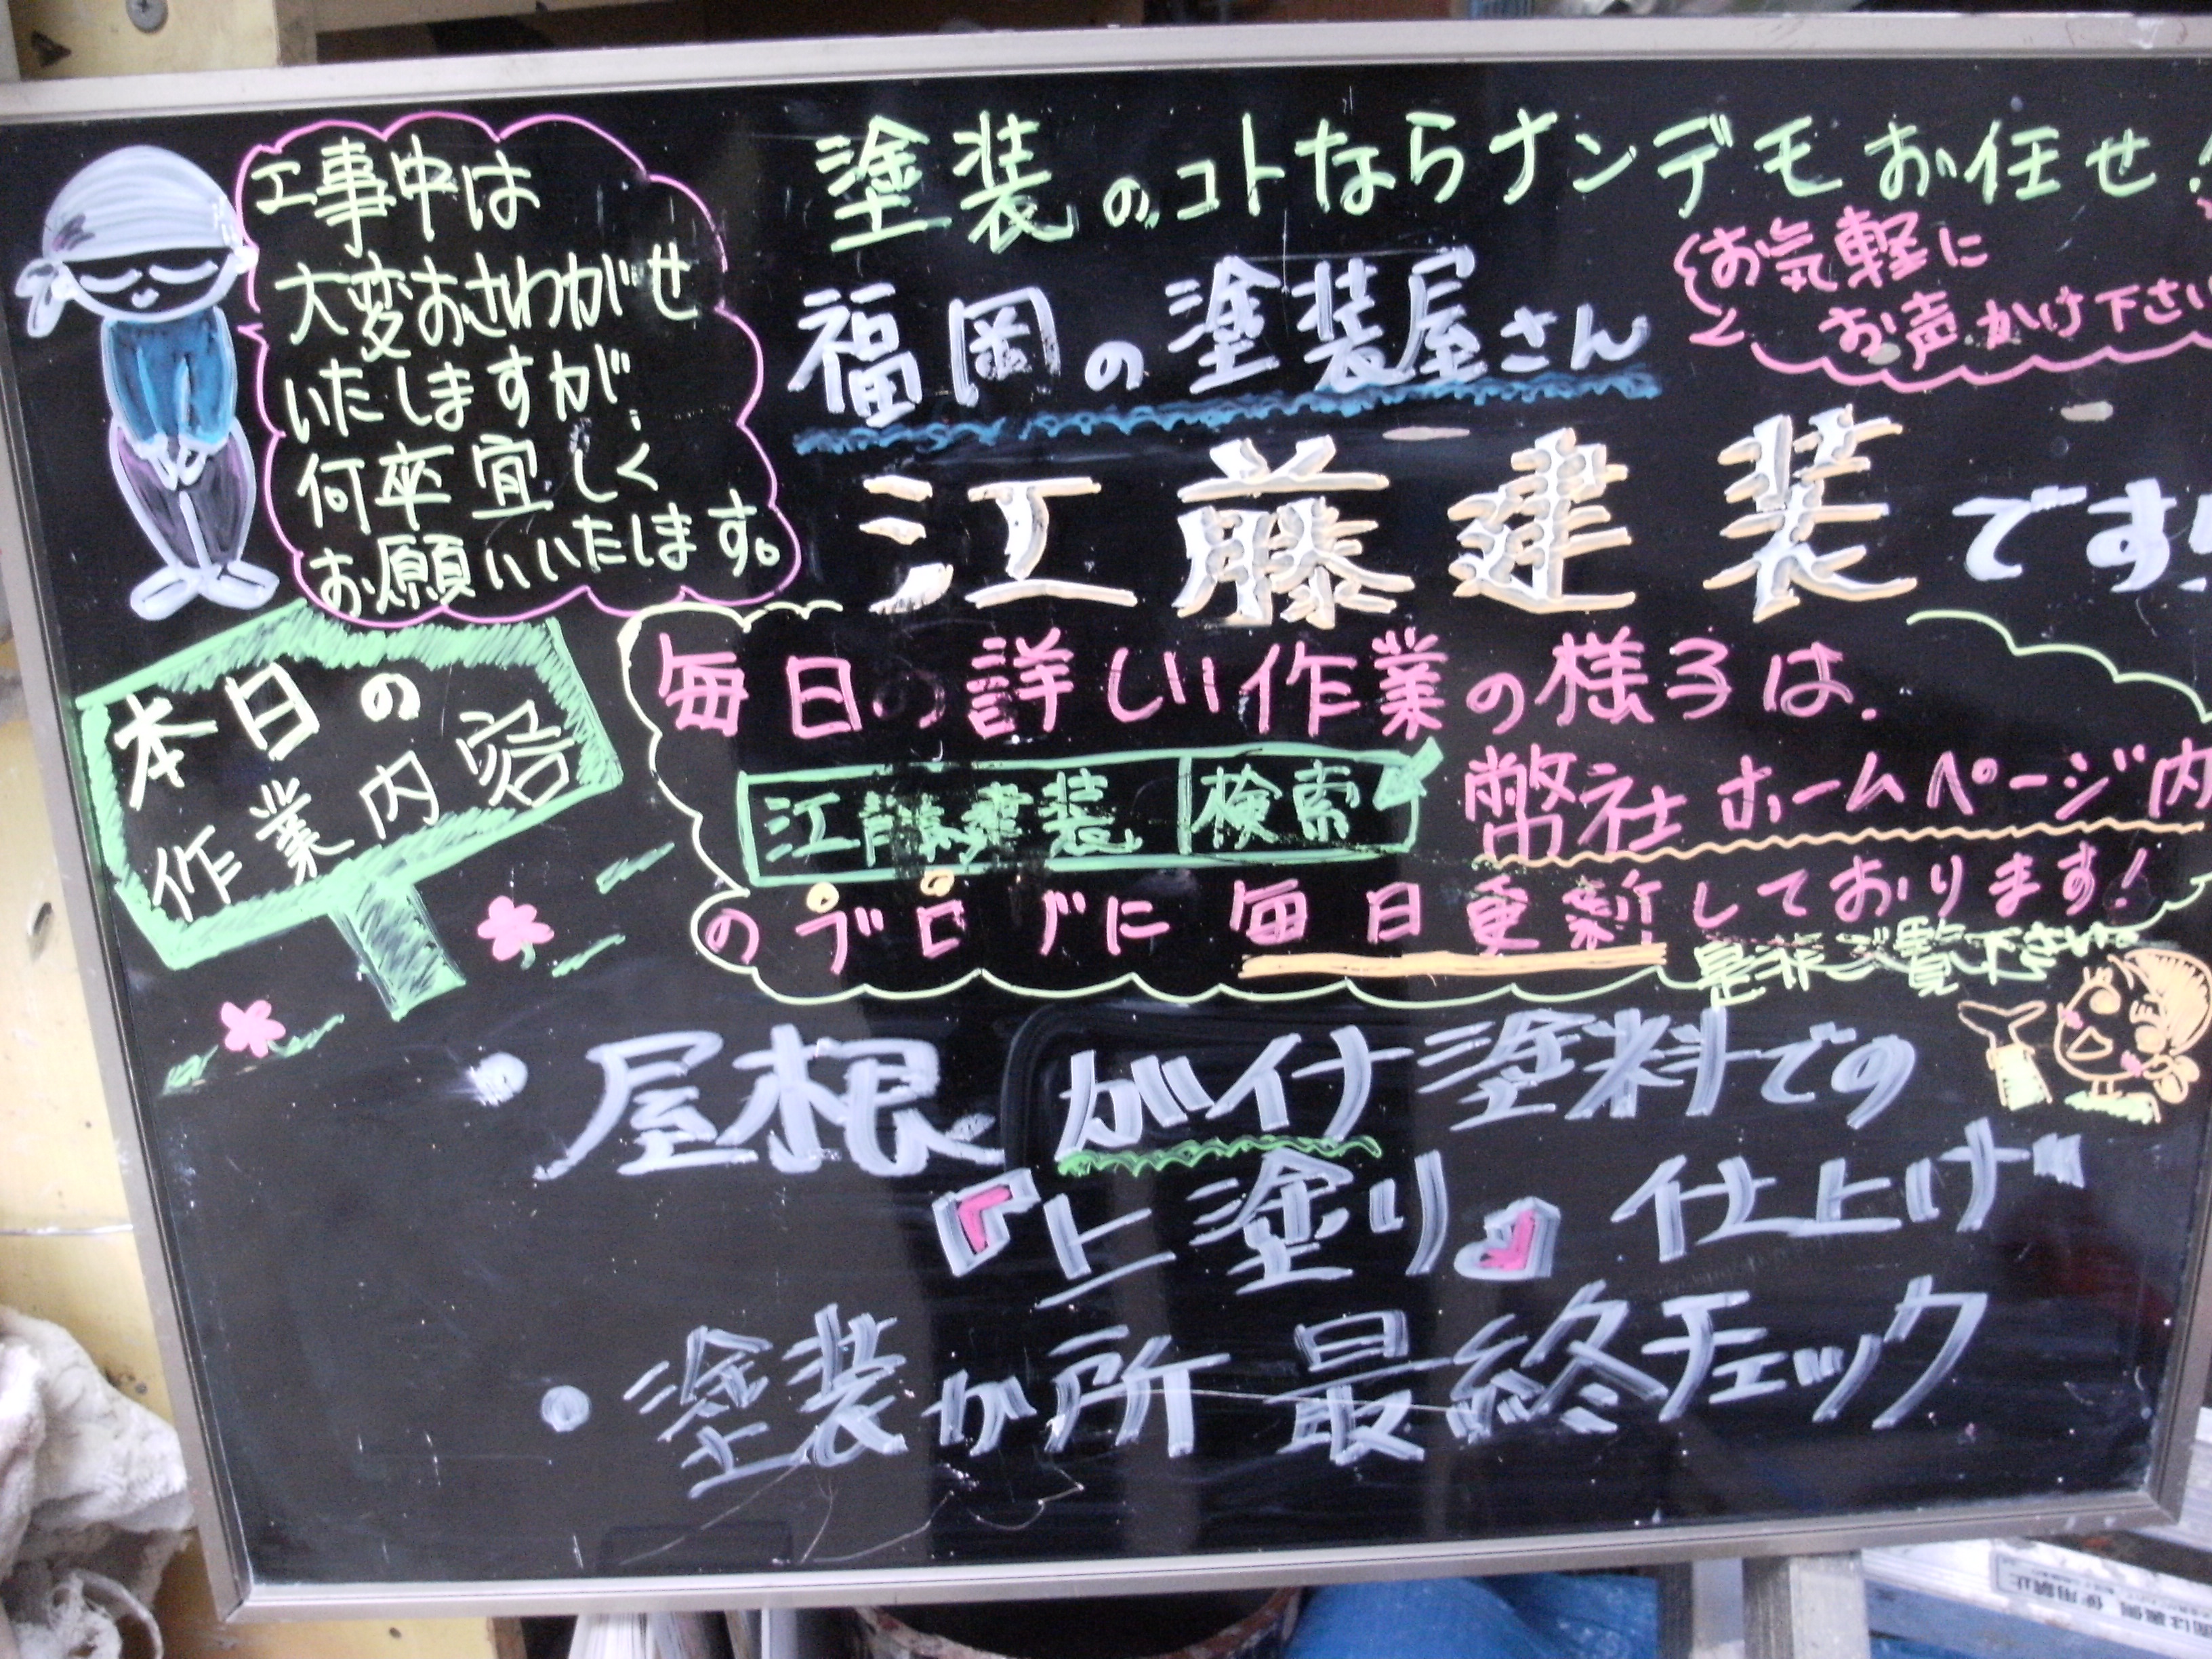 工事中は
大変おさわがせ
いたしますが、
何卒宜しく
お願いいたします。
塗装のコトならナンデモお任せ!
お気軽に
お声かけ下さい
福岡の塗装屋さん
江藤建装です
本日の
作業内容
毎日の詳しい作業の様子は、
江藤建装 検索 弊社ホームページ内
のブログに毎日更新しております!
是非ご覧下さい。
・屋根 ガイナ塗料での
『上塗り』仕上げ
・塗装か所 最終チェック